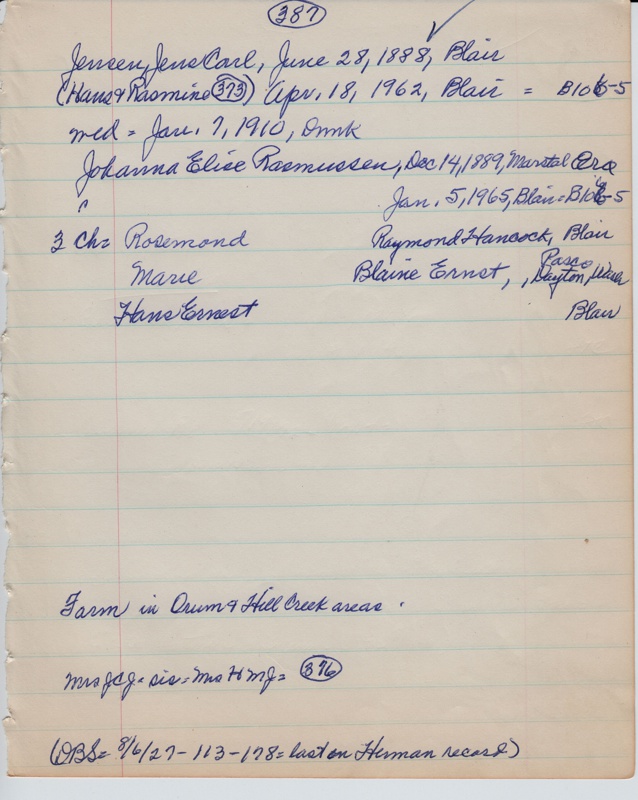 387
Jensen, Jens Carl, June 28, 1888, Blair
(Hans & Rasmine 373) Apr. 18, 1962, Blair = B106-5
md = Jan. 7, 1910, Dnmk
Johanna Elise Rasmussen, Dec 14, 1889, Marstal Ero
Jan. 5, 1965, Blair = B106-5
3 Ch = Rosemond Raymond Hancock, Blair
Pasco
Marie Blaine Ernst, , Dayton, Wash
Hans Ernest Blair
Farm in Orum & Hill Creek areas.
Mrs JCJ = sis = Mrs H MJ = 376
(DBS = 8/6/27 - 113 - 178 = last on Herman record)